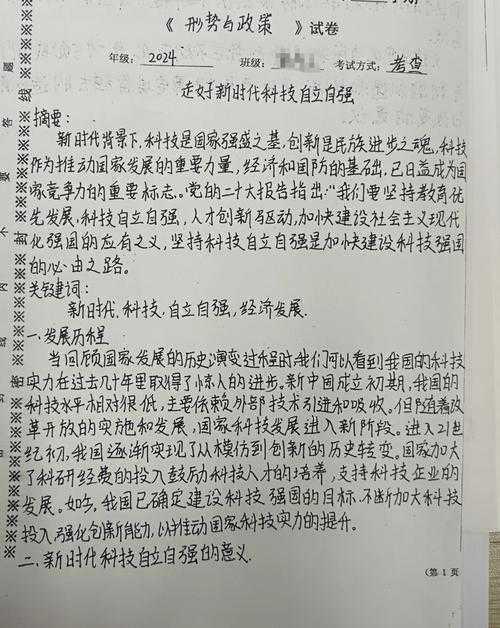 《 形势与政策 》试卷
年级：2024 班级： 考试方式：考查
走好新时代科技自立自强
摘要：
新时代背景下，科技是国家强盛之基，创新是民族进步之魂，科技
作为推动国家发展的重要力量，经济和国防的基础，已日益成为国
家竞争力的重要标志。党的二十大报告指出："我们要坚持教育优
先发展，科技自立自强，人才创新驱动，加快建设社会主义现代
化强国的应有之义，坚持科技自立自强是加快建设科技强国
的必由之路。
关键词：
新时代，科技，自立自强，经济发展.
一.发展历程
当回顾国家发展的历史演变过程时，我们可以看到我国的科技
实力在过去几十年里取得了惊人的进步。新中国成立初期，我国的
科技水平相对很低，主要依赖外部技术引进和吸收。但随着改
革开放的实施和发展，国家科技发展进入新阶段。进入21世
纪初，我国逐渐实现了从模仿到创新的历史转变。国家加大
了科研经费的投入鼓励科技人才的培养，支持科技企业的
发展。如今，我国已确定建设科技强国的目标，不断加大科技
投入，强化创新能力，以推动国家科技实力的提升。
二.新时代科技自立自强的意义.
（第 1 页
题
答
要
不
内
线
封
密